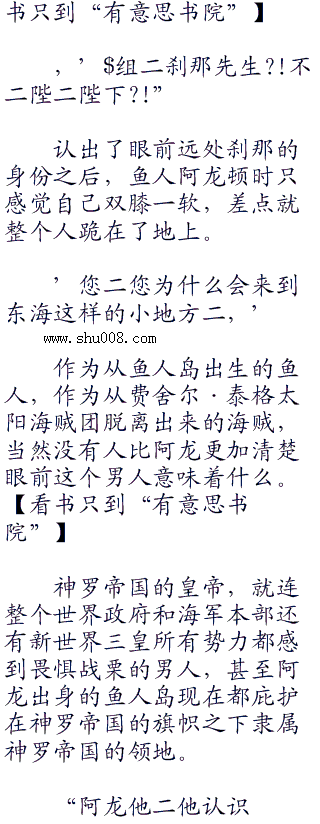 书只到“有意思书院”】
，’$组二刹那先生?!不
二陛二陛下?!”
认出了眼前远处刹那的
身份之后，鱼人阿龙顿时只
感觉自己双膝一软，差点就
整个人跪在了地上。
’您二您为什么会来到
东海这样的小地方二，’
www.shu008.com
作为从鱼人岛出生的鱼
人，作为从费舍尔·泰格太
阳海贼团脱离出来的海贼，
当然没有人比阿龙更加清楚
眼前这个男人意味着什么。
【看书只到“有意思书
院”】
神罗帝国的皇帝，就连
整个世界政府和海军本部还
有新世界三皇所有势力都感
到畏惧战栗的男人，甚至阿
龙出身的鱼人岛现在都庇护
在神罗帝国的旗帜之下隶属
神罗帝国的领地。
“阿龙他二他认识